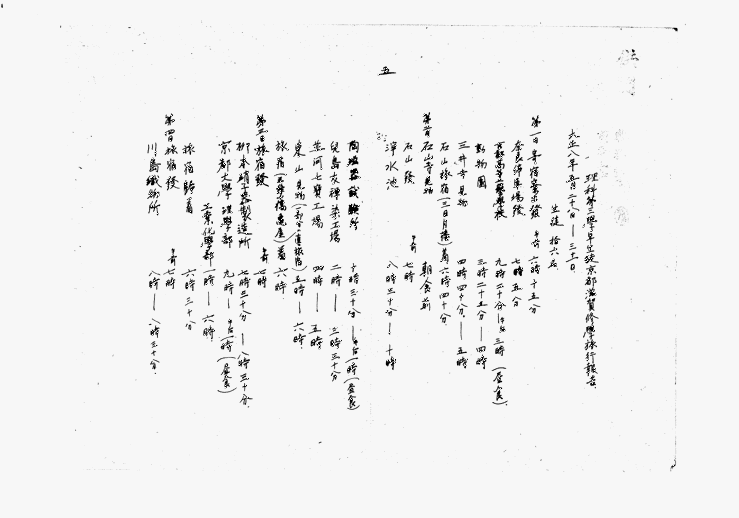 五
理科第三學年生徒京都滋賀修學旅行報告
大正八年五月二十八日――三十一日
生徒 拾六名
第一日 寄宿舍出發 午前 六時十五分
奈良停車場發 七時五分
京都高等工藝學校 九時二十分――午后三時(昼食)
動物園 三時二十五分――四時
三井寺見物 四時四十分――五時
石山旅宿(三日月樓)着 六時四十分
第二日 石山寺見物 朝食前
石山發 午前 七時
浄水池 八時三十分――十時
陶磁器試験所 十時三十分――午后一時(昼食)
兒島友禅染工場 二時――三時三十分
並河七寳工場 四時――五時
東山見物 五時――六時
旅宿(三條小橋亀屋)着 六時
第三日 旅宿發 午前 七時
七時三十分――八時三十分
京都大學 理學部 九時――午后一時(昼食)
工業化學部 一時――六時
旅宿歸着 六時三十分
第四日 旅宿發 午前 七時
川島織物所 八時――八時三十分